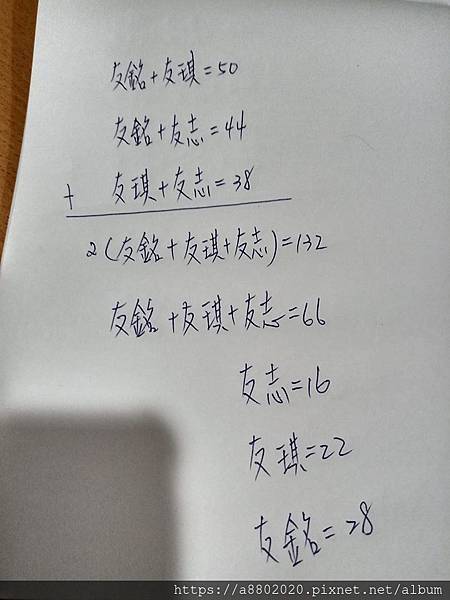 友銘+友琪=50
友銘+友志=44
+ 友琪+友志=38
2(友銘+友琪+友志)=132
友銘+友琪+友志=66
友志=16
友琪=22
友銘=28
https://a8802020.pixnet.net/album